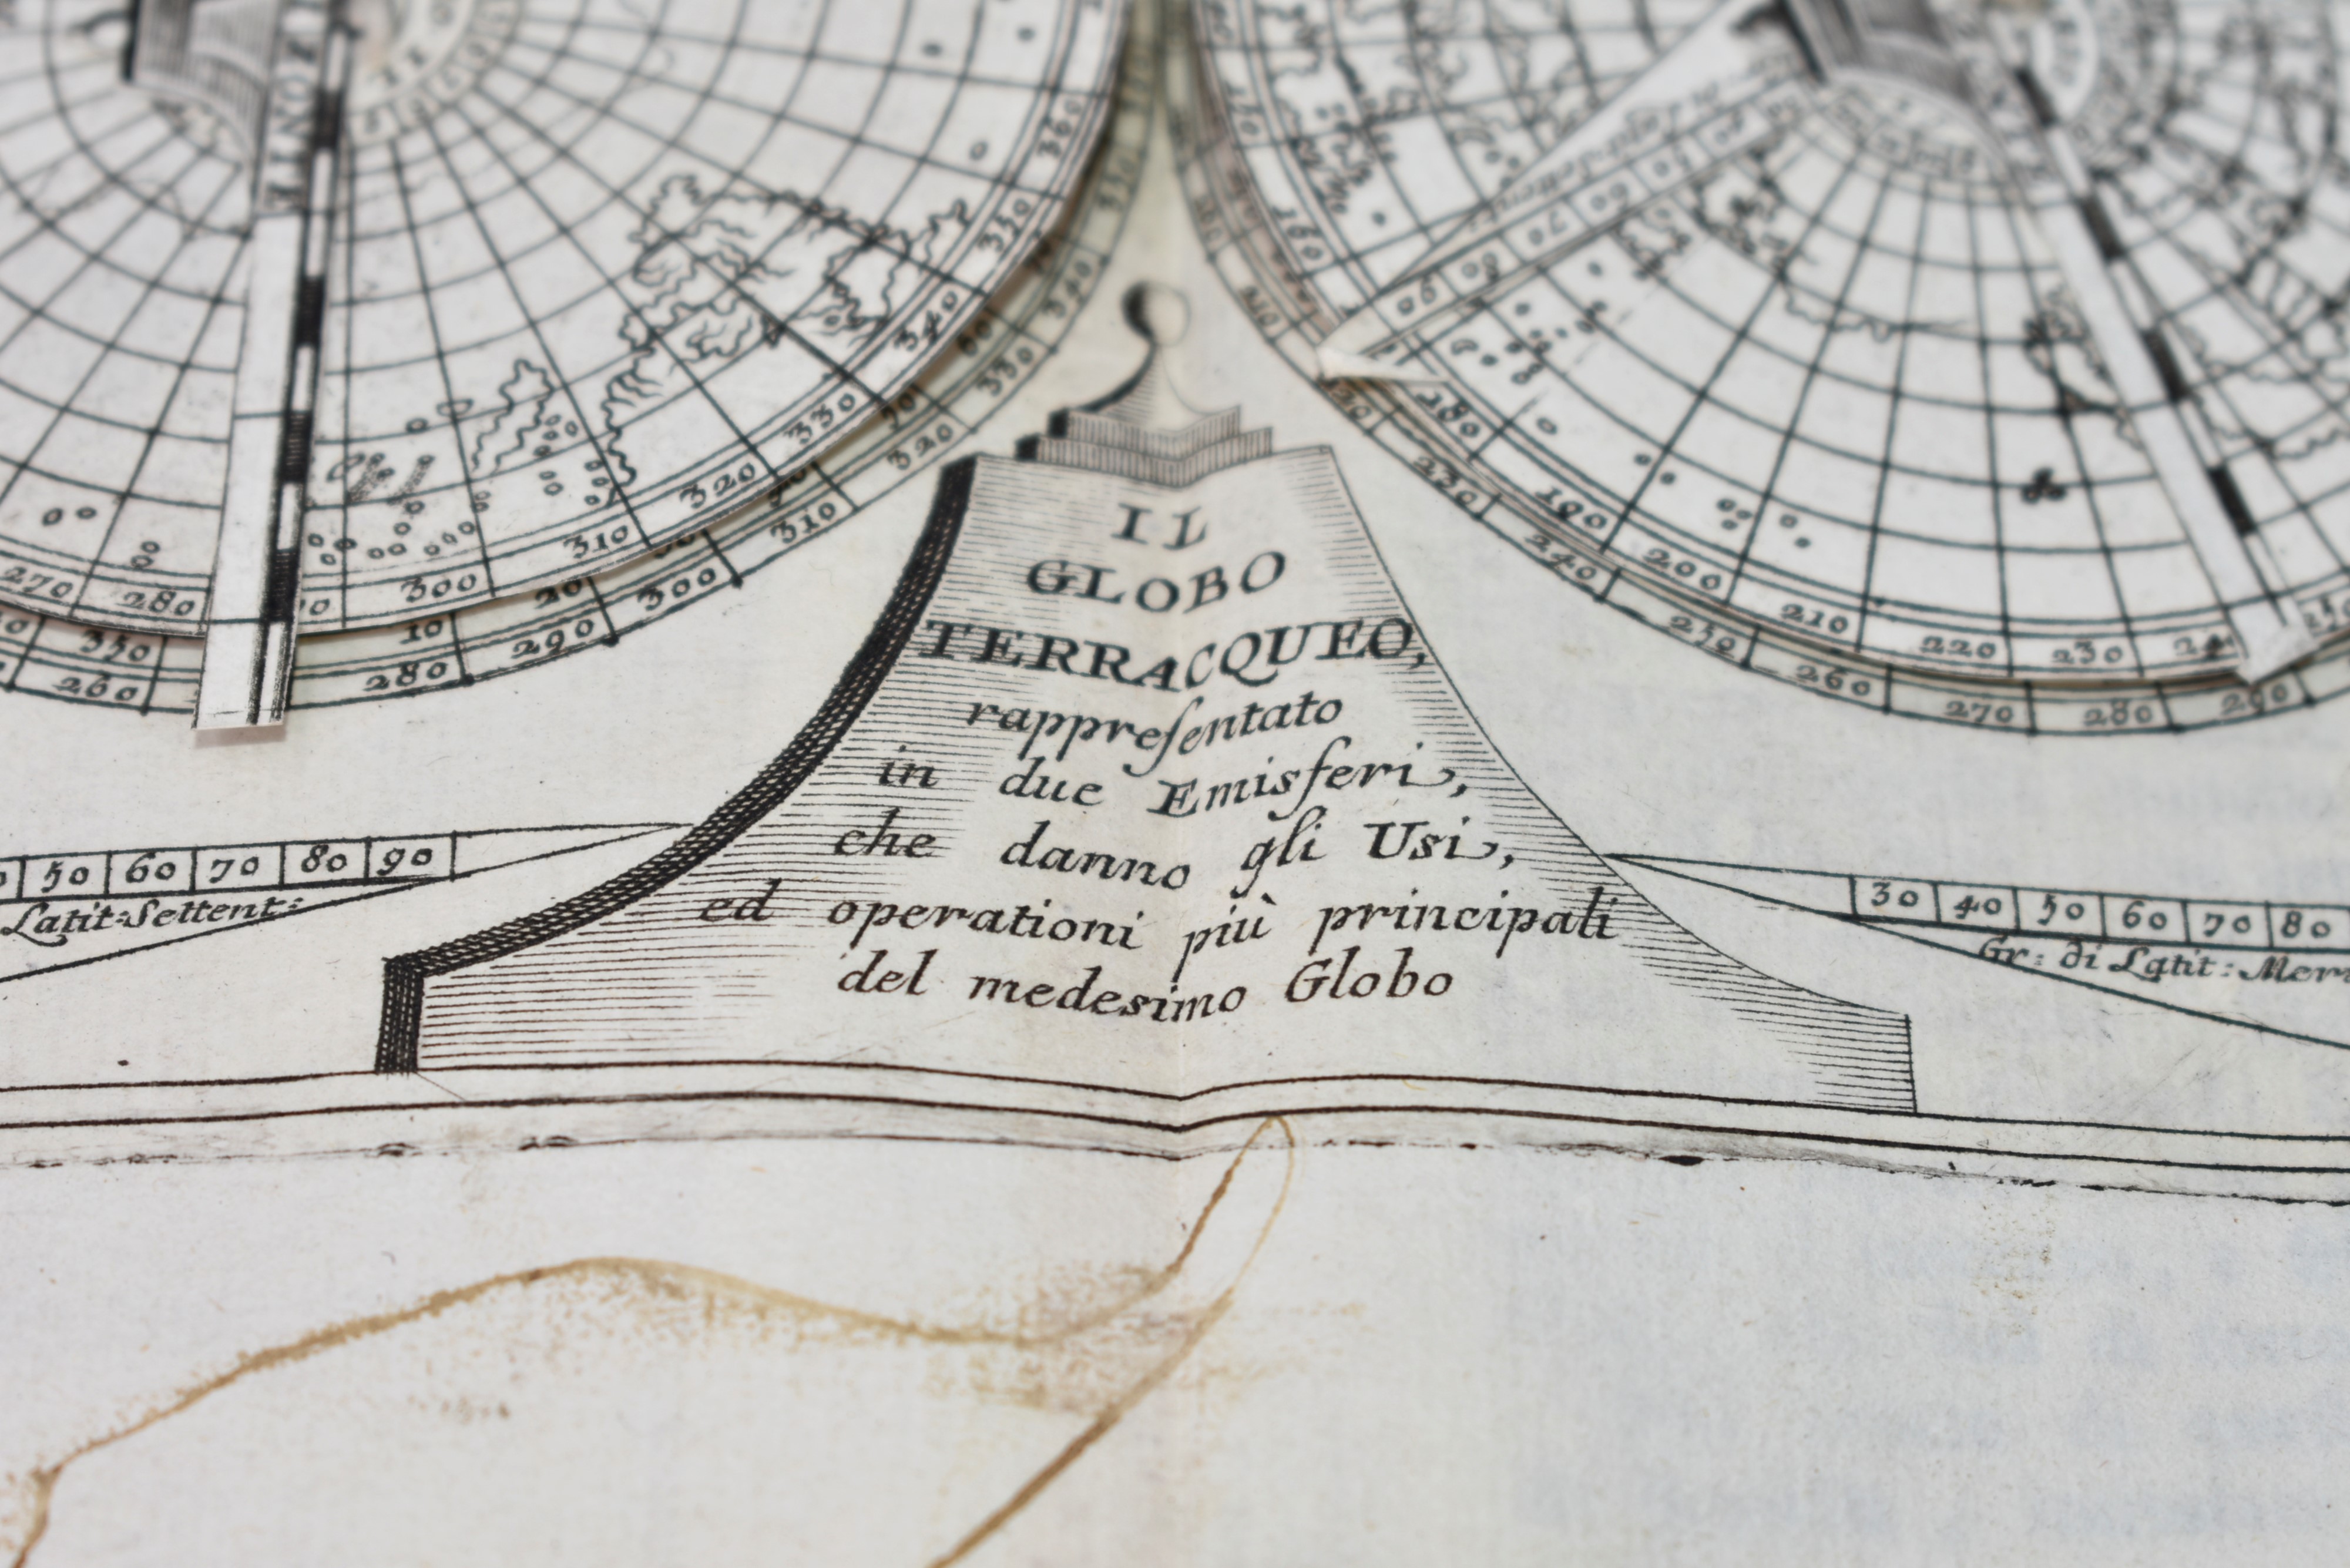 IZONTE
360
350
340
330
320
310
300
280
270
330
340
330
320
310
300
290
280
260
350
10
20
160
180
190
200
210
220
230
230
240
250
260
270
280
290
70
80
90
IL
GLOBO
TERRACQUEO,
rappreſentato
in due Emisferi,
che danno gli Usi,
ed operationi più principali
del medesimo Globo
50 60 70 80 90
Latit:Settent:
30 40 50 60 70 80
Gr: di Latit: Meri